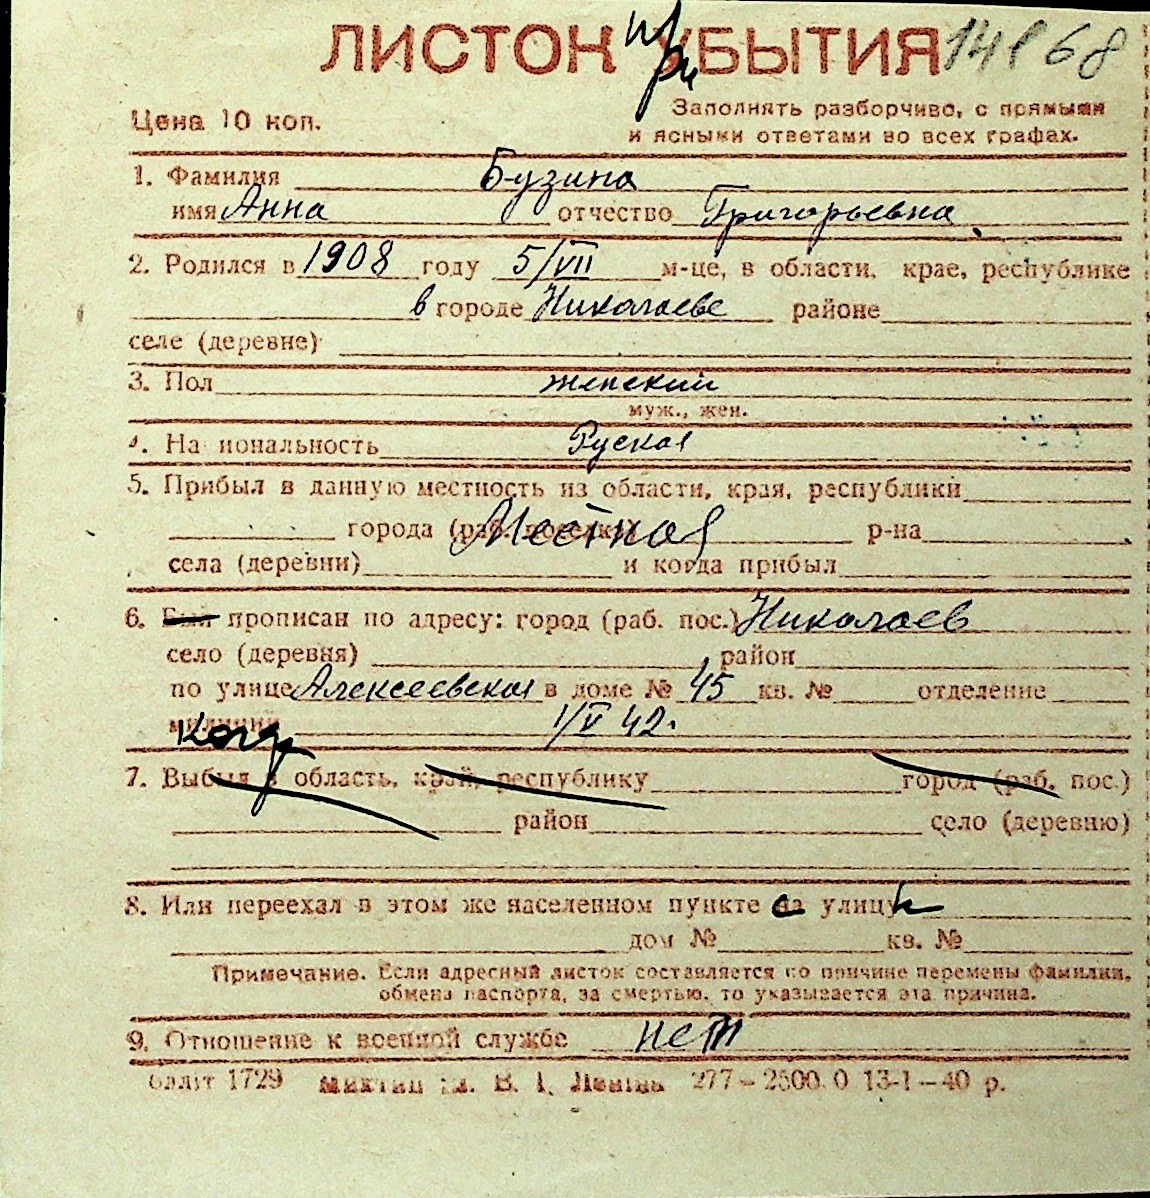 ЛИСТОК при УБЫТИЯ 14968
Цена 10 коп.
Заполнять разборчиво, с прямыми
и ясными ответами во всех графах.
1. Фамилия Бузина
имя Анна отчество Григорьевна
2. Родился в 1908 году 5/VII м-це, в области, крае, республике
в городе Николаеве районе
селе (деревне)
3. Пол женский
муж., жен.
4. На иональность Руская
5. Прибыл в данную местность из области, края, республики
города (раб. поселка) Местная р-на
села (деревни) и когда прибыл
6. Был прописан по адресу: город (раб. пос.) Николаев
село (деревня) район
по улице Алексеевская в доме № 45 кв. № отделение
милиции 1/V 42.
Когда
7. Выбыл в область, край, республику город (раб. пос.)
район село (деревню)
8. Или переехал в этом же населенном пункте с улицы
дом № кв. №
Примечание. Если адресный листок составляется по причине перемены фамилии,
обмена паспорта, за смертью, то указывается эта причина.
9. Отношение к военной службе нет
1729 В. І. Леніна 277 — 2500.0 13-1 — 40 р.